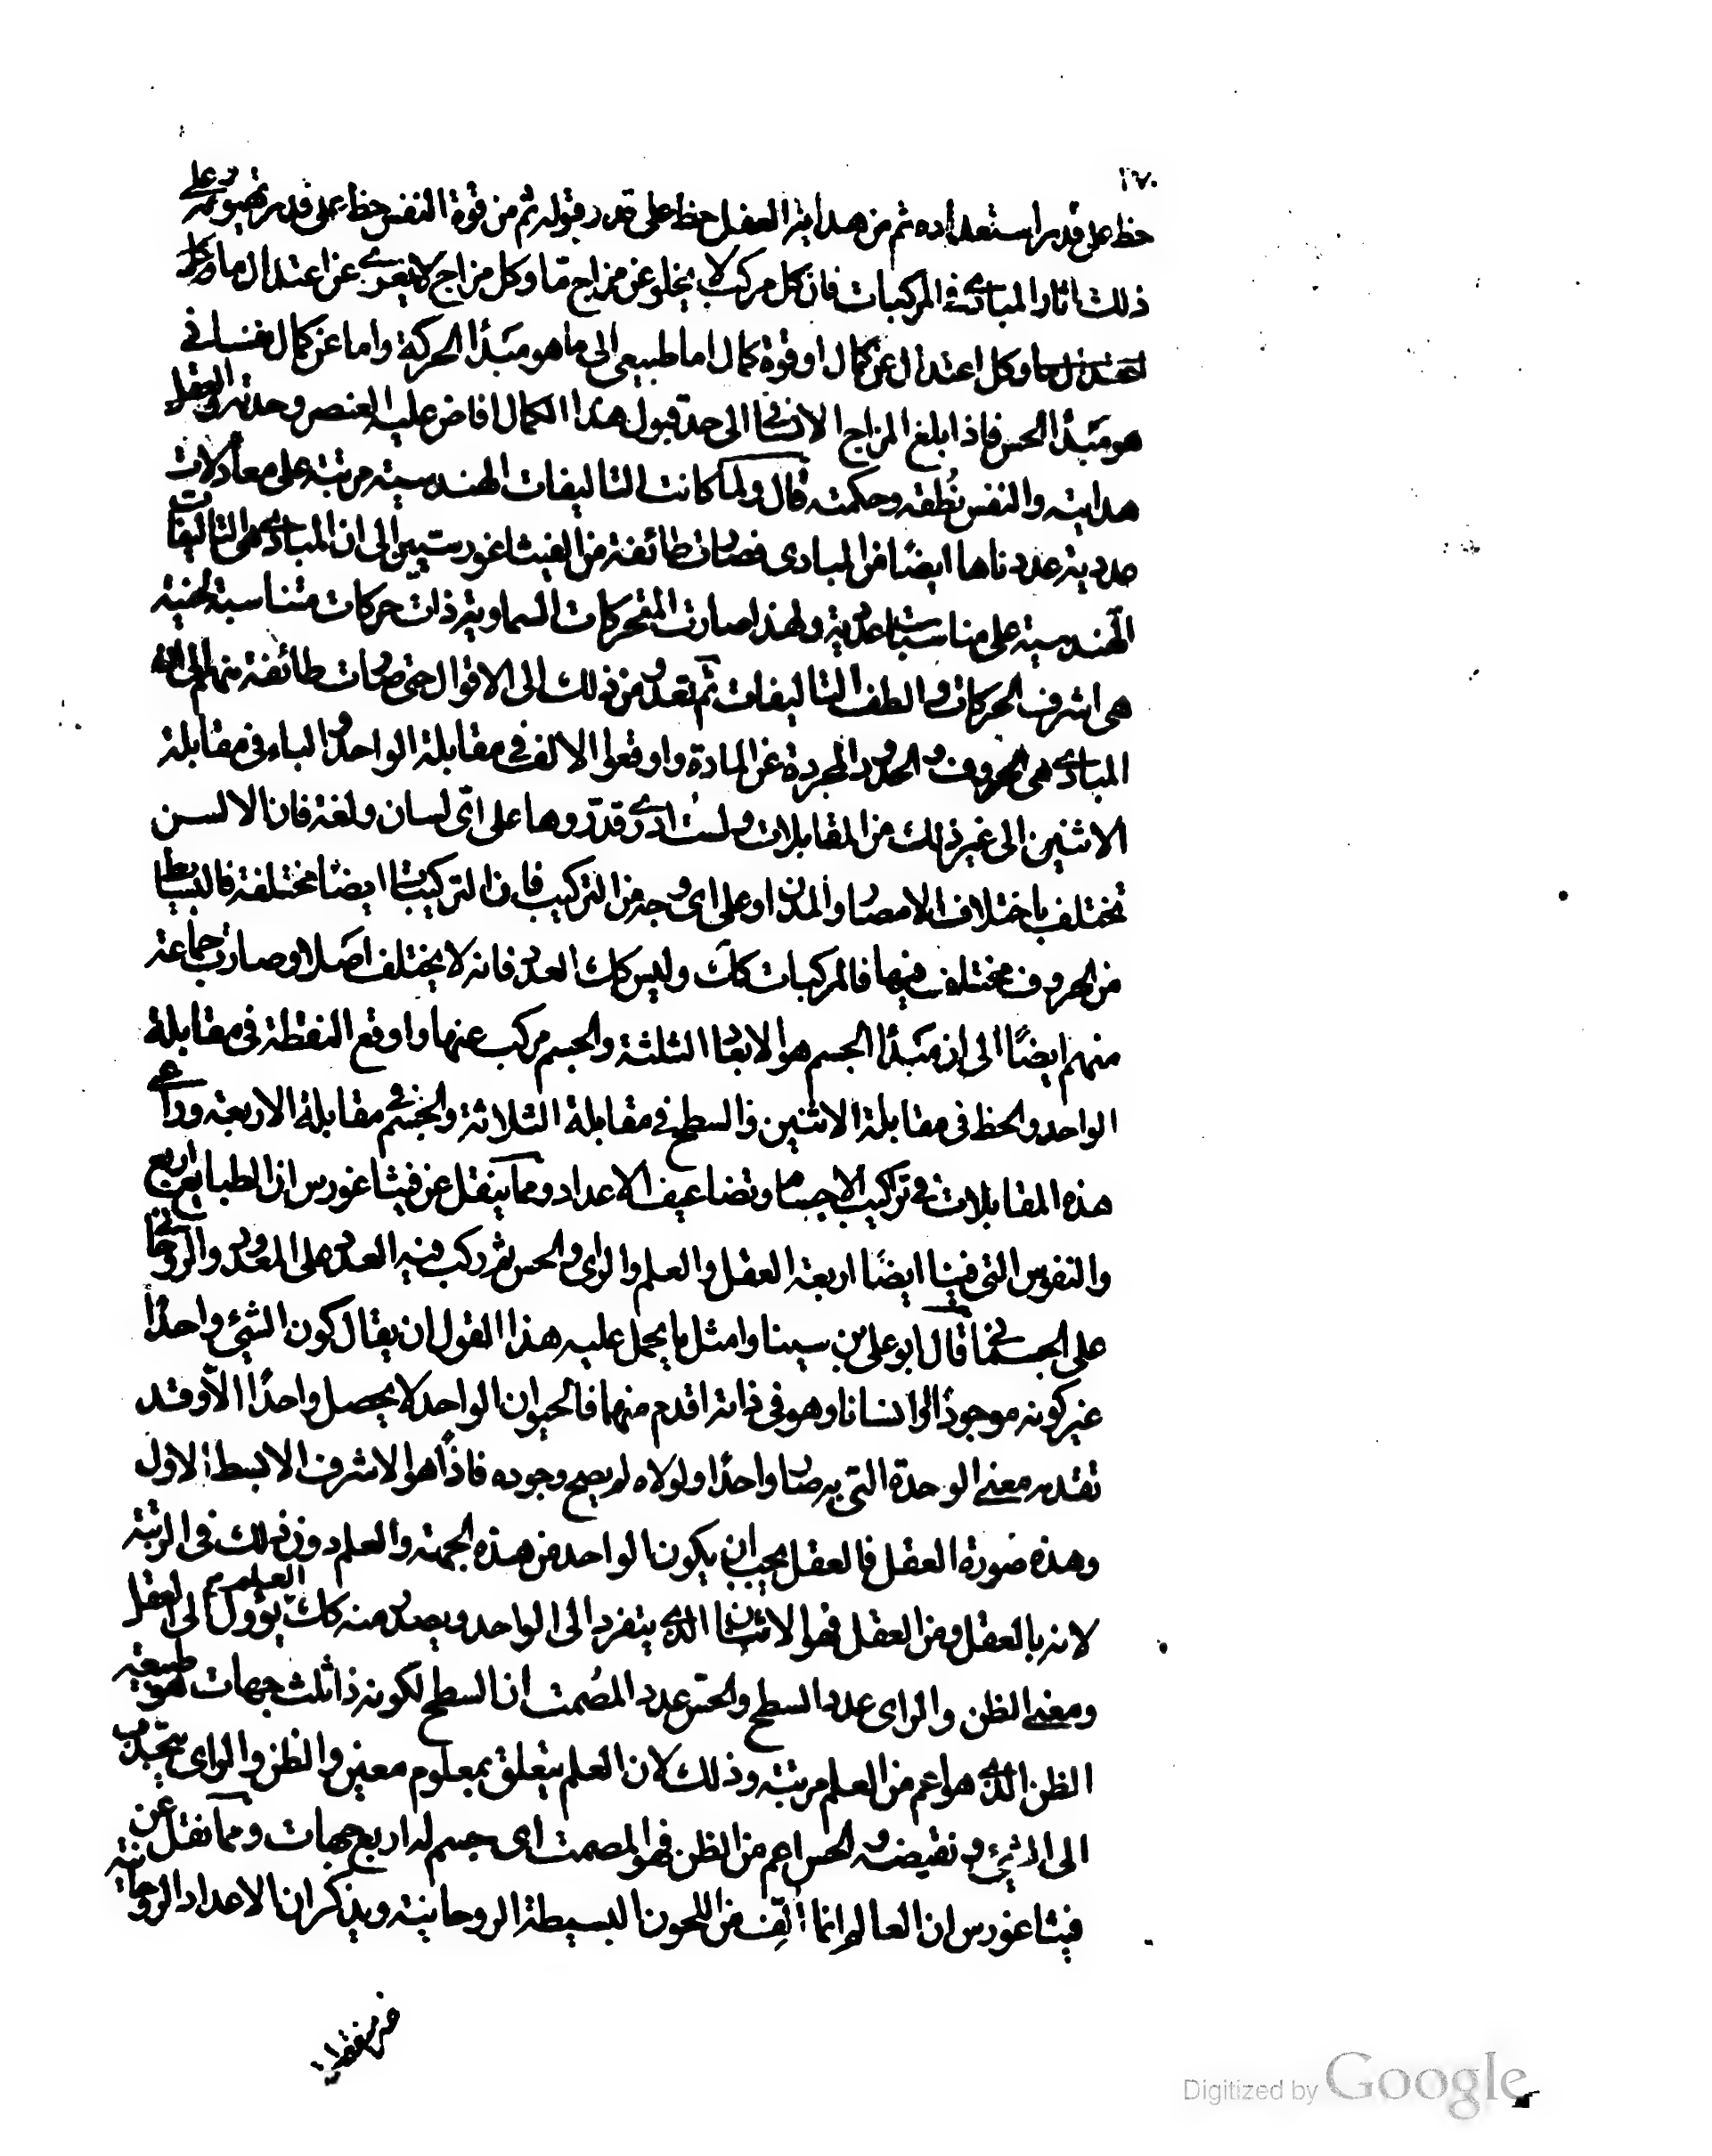 ١٧٠
حظ على قدر استعداده ثم من هداية العقل حظ على قدر قبوله ثم من قوة النفس حظ على قدر تهيوئه وعلى
ذلك اثار المبادى فى المركبات فان كل مركب لا يخلو عن مزاج ما وكل مزاج لا يعرى عن اعتدال ما وكل
اعتدال ما وكل اعتدال عن كمال او قوة كمال اما طبيعى الى ما هو مبدأ الحركة واما عن كمال نفسانى
هو مبدأ الحس فاذا بلغ المزاج الانسانى الى حد قبول هذا الكمال افاض عليه العنصر وحدته والعقل
هدايته والنفس نطقه وحكمته قال ولما كانت التاليفات الهندسية مرتبة على معادلات
عددية عددناها ايضًا من المبادى فصارت طائفة من الفيثاغورسيين الى ان المبادى هى التاليفات
الهندسية على مناسبات عددية ولهذا صارت المتحركات السماوية ذات حركات متناسبة لحنية
هى اشرف الحركات والطف التاليفات ثم تعدوا من ذلك الى الاقوال حتى صارت طائفة منهم الى ان
المبادى هى الحروف والحدود المجردة عن المادة واوقعوا الالف فى مقابلة الواحد والباء فى مقابلة
الاثنين الى غير ذلك من المقابلات ولست ادرى قدروها على اى لسان ولغة فان الالسن
تختلف باختلاف الامصار والمدن او على اى وجه من التركيب فان التركيبات ايضًا مختلفة فالبسائط
من الحروف مختلف فيها فالمركبات كك وليس كك العدد فانه لا يختلف اصلا وصارت جماعة
منهم ايضًا الى ان مبدأ الجسم هو الابعاد الثلثة والجسم مركب عنها واوقع النقطة فى مقابلة
الواحد والخط فى مقابلة الاثنين والسطح فى مقابلة الثلاثة والجسم فى مقابلة الاربعة وراعى
هذه المقابلات فى تراكيب الاجسام وتضاعيف الاعداد ومما ينقل عن فيثاغورس ان الطبايع اربع
والنفوس التى فينا ايضًا اربعة العقل والعلم والراى والحس ثم ركب فيه العدد على المعدود والروحانى
على الجسمانى قال ابو على بن سينا وامثل ما يحمل عليه هذا القول ان يقال كون الشئ واحدًا
غير كونه موجودًا او انسانا وهو فى ذاته اقدم منهما فالحيوان الواحد لا يحصل واحدًا الا وقد
تقدمه معنى الوحدة التى به صار واحدًا ولولاه لم يصح وجوده فاذًا هو الاشرف الابسط الاول
وهذه صورة العقل فالعقل يجب ان يكون الواحد من هذه الجهة والعلم دون ذلك فى الرتبة
لانه بالعقل ومن العقل فهو الاثنان الذى يتفرد الى الواحد ويصدر منه كك العلم يؤول الى العقل
ومعنى الظن والراى عدد السطح والحس عدد المصمت ان السطح لكونه ذا ثلث جهات هو طبيعة
الظن الذى هو اعم من العلم مرتبة وذلك لان العلم يتعلق بمعلوم معين والظن والراى ينجذب
الى الشئ ونقيضه والحس اعم من الظن فهو المصمت اى جسم له اربع جهات ومما نقل عن
فيثاغورس ان العالم انما الف من اللحون البسيطة الروحانية ويذكر ان الاعداد الروحانية